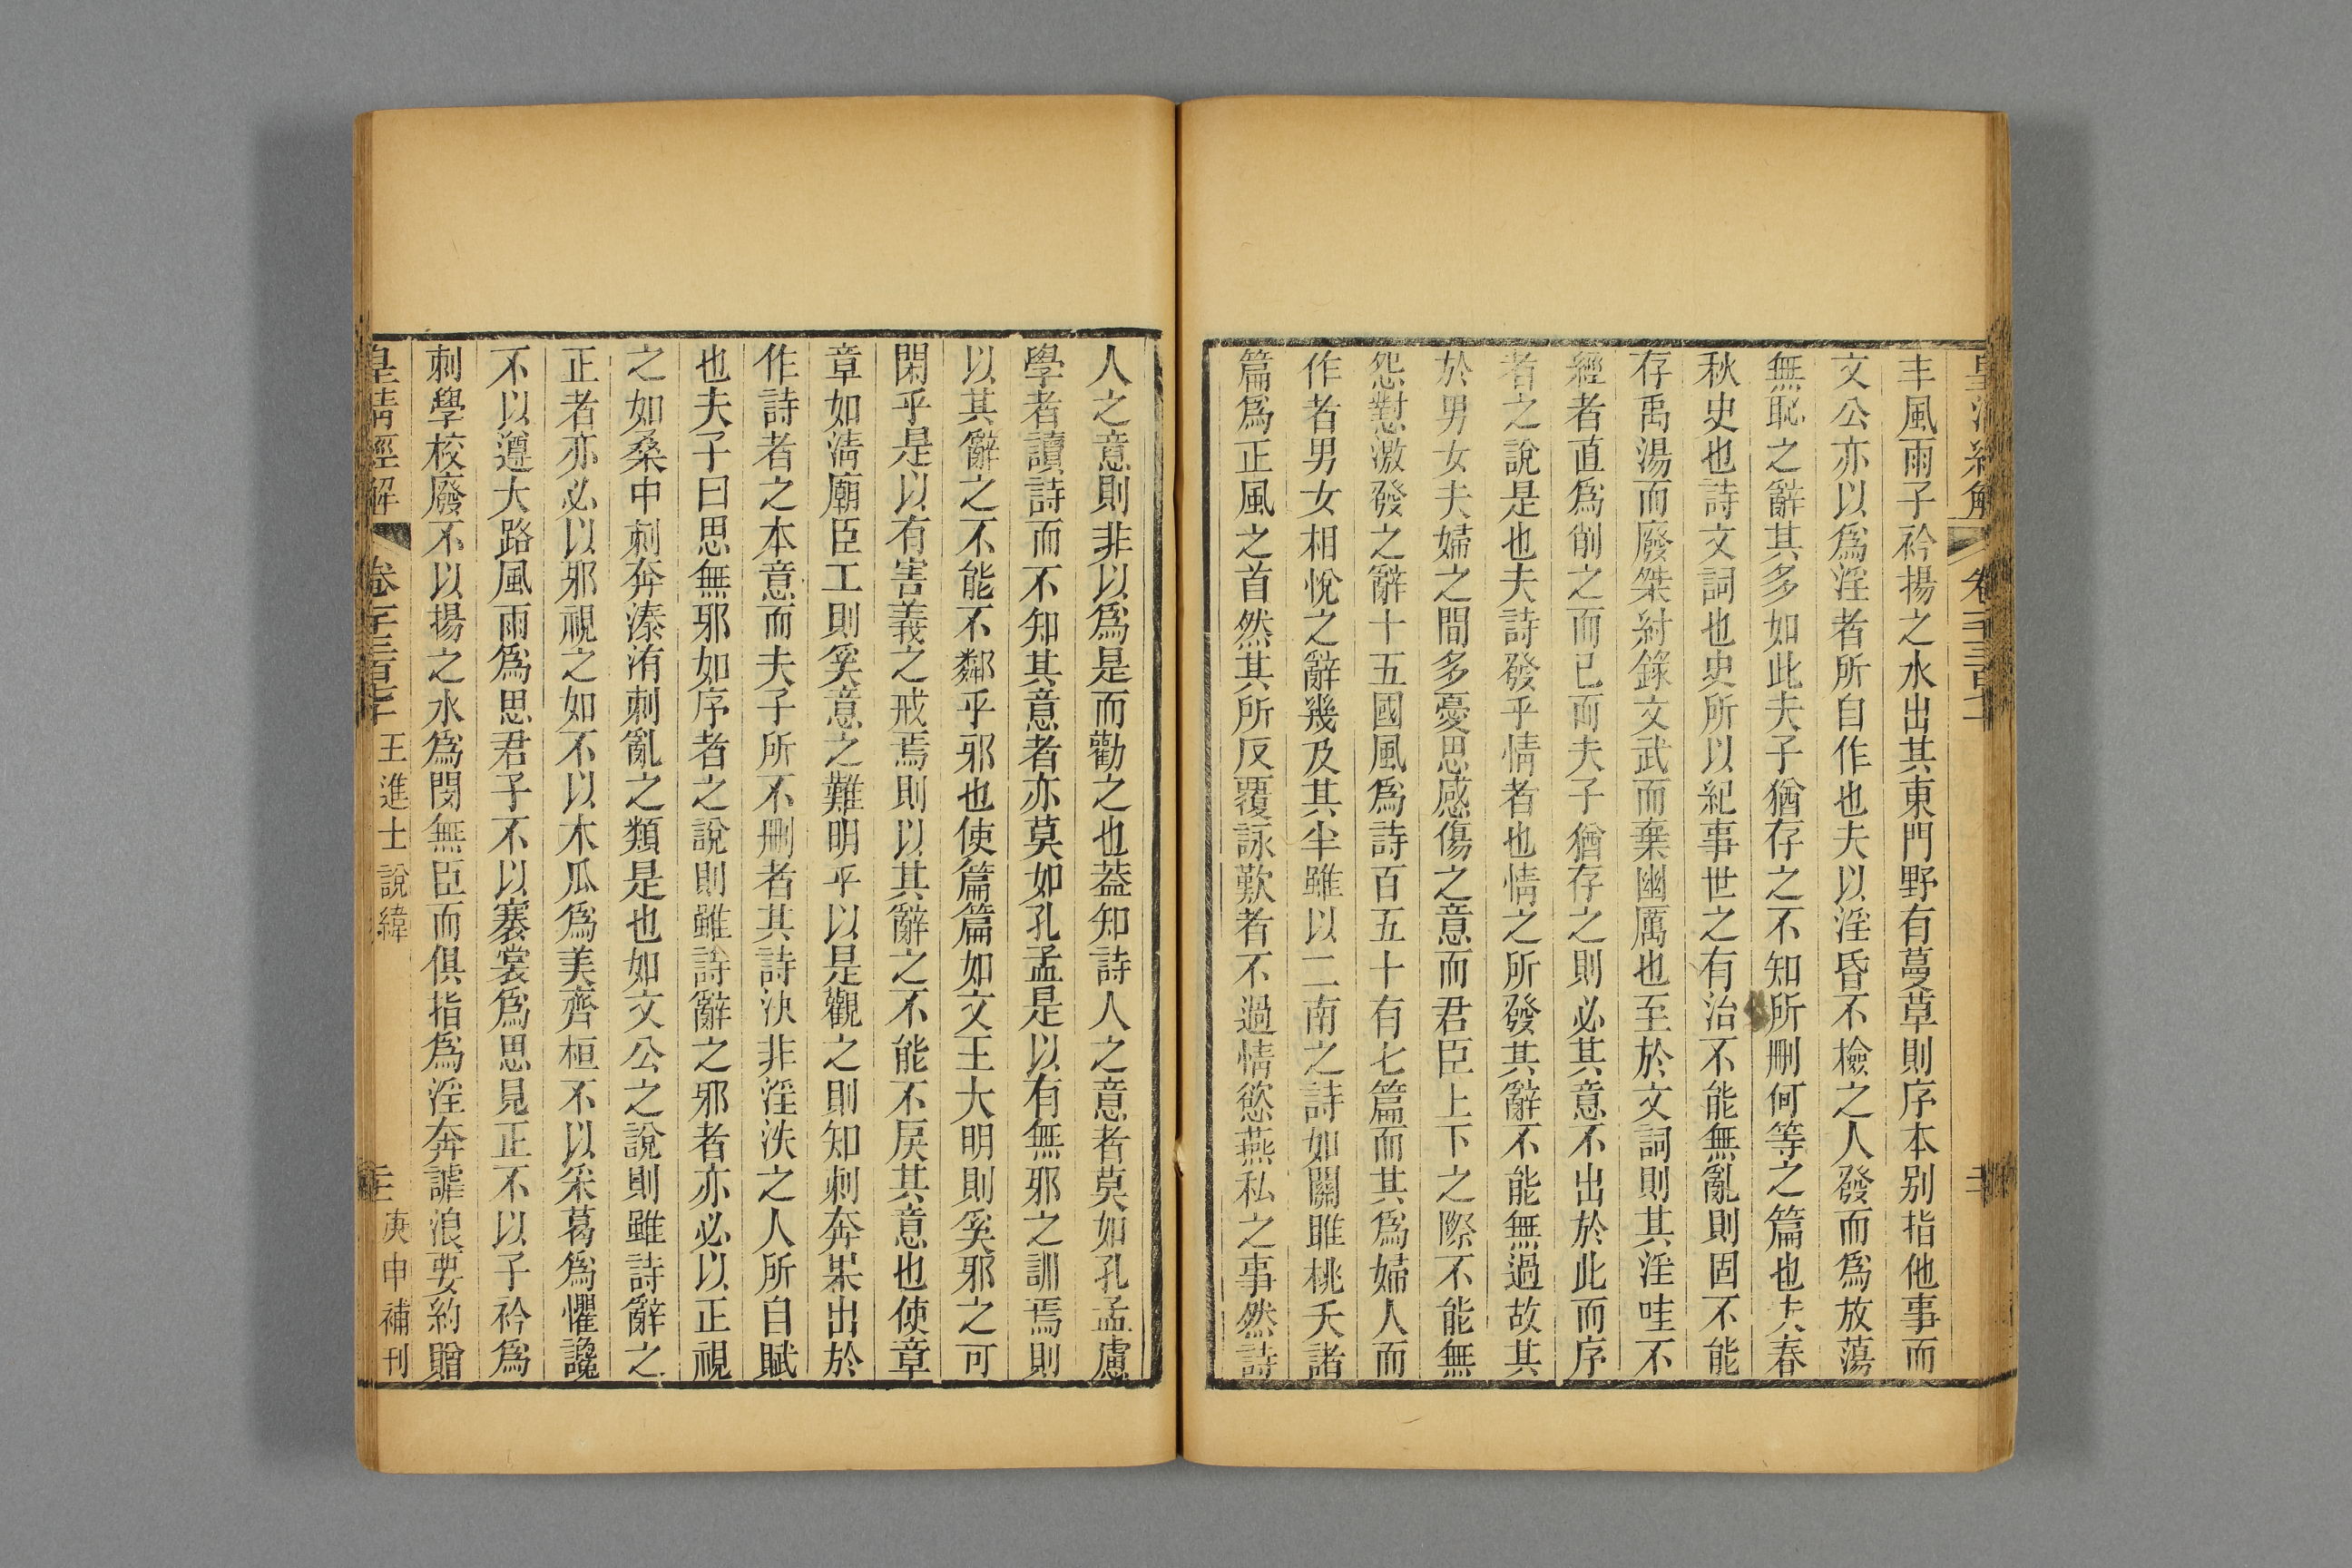 皇清經解
卷一千三百七十
丰風雨子衿揚之水出其東門野有蔓草則序本别指他事而
文公亦以爲淫者所自作也夫以淫昏不檢之人發而爲放蕩
無恥之辭其多如此夫子猶存之不知所刪何等之篇也夫春
秋史也詩文詞也史所以紀事世之有治不能無亂則固不能
存禹湯而廢桀紂錄文武而棄幽厲也至於文詞則其淫哇不
經者直爲削之而已而夫子猶存之則必其意不出於此而序
者之說是也夫詩發乎情者也情之所發其辭不能無過故其
於男女夫婦之間多憂思感傷之意而君臣上下之際不能無
怨懟激發之辭十五國風爲詩百五十有七篇而其爲婦人而
作者男女相悅之辭幾及其半雖以二南之詩如關雎桃夭諸
篇爲正風之首然其所反覆詠歎者不過情慾燕私之事然詩
人之意則非以爲是而勸之也葢知詩人之意者莫如孔孟慮
學者讀詩而不知其意者亦莫如孔孟是以有無邪之訓焉則
以其辭之不能不鄰乎邪也使篇篇如文王大明則奚邪之可
閑乎是以有害義之戒焉則以其辭之不能不戾其意也使章
章如淸廟臣工則奚意之難明乎以是觀之則知刺奔果出於
作詩者之本意而夫子所不刪者其詩決非淫泆之人所自賦
也夫子曰思無邪如序者之說則雖詩辭之邪者亦必以正視
之如桑中刺奔溱洧刺亂之類是也如文公之說則雖詩辭之
正者亦必以邪視之如不以木瓜爲美齊桓不以采葛爲懼讒
不以遵大路風雨爲思君子不以褰裳爲思見正不以子衿爲
刺學校廢不以揚之水爲閔無臣而俱指爲淫奔謔浪要約贈
皇清經解
卷一千三百七十
王進士說緯
庚申補刊